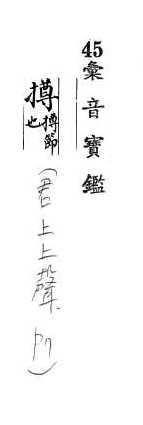 45彙音寶鑑
撙撙節也
(君上上聲,p7)